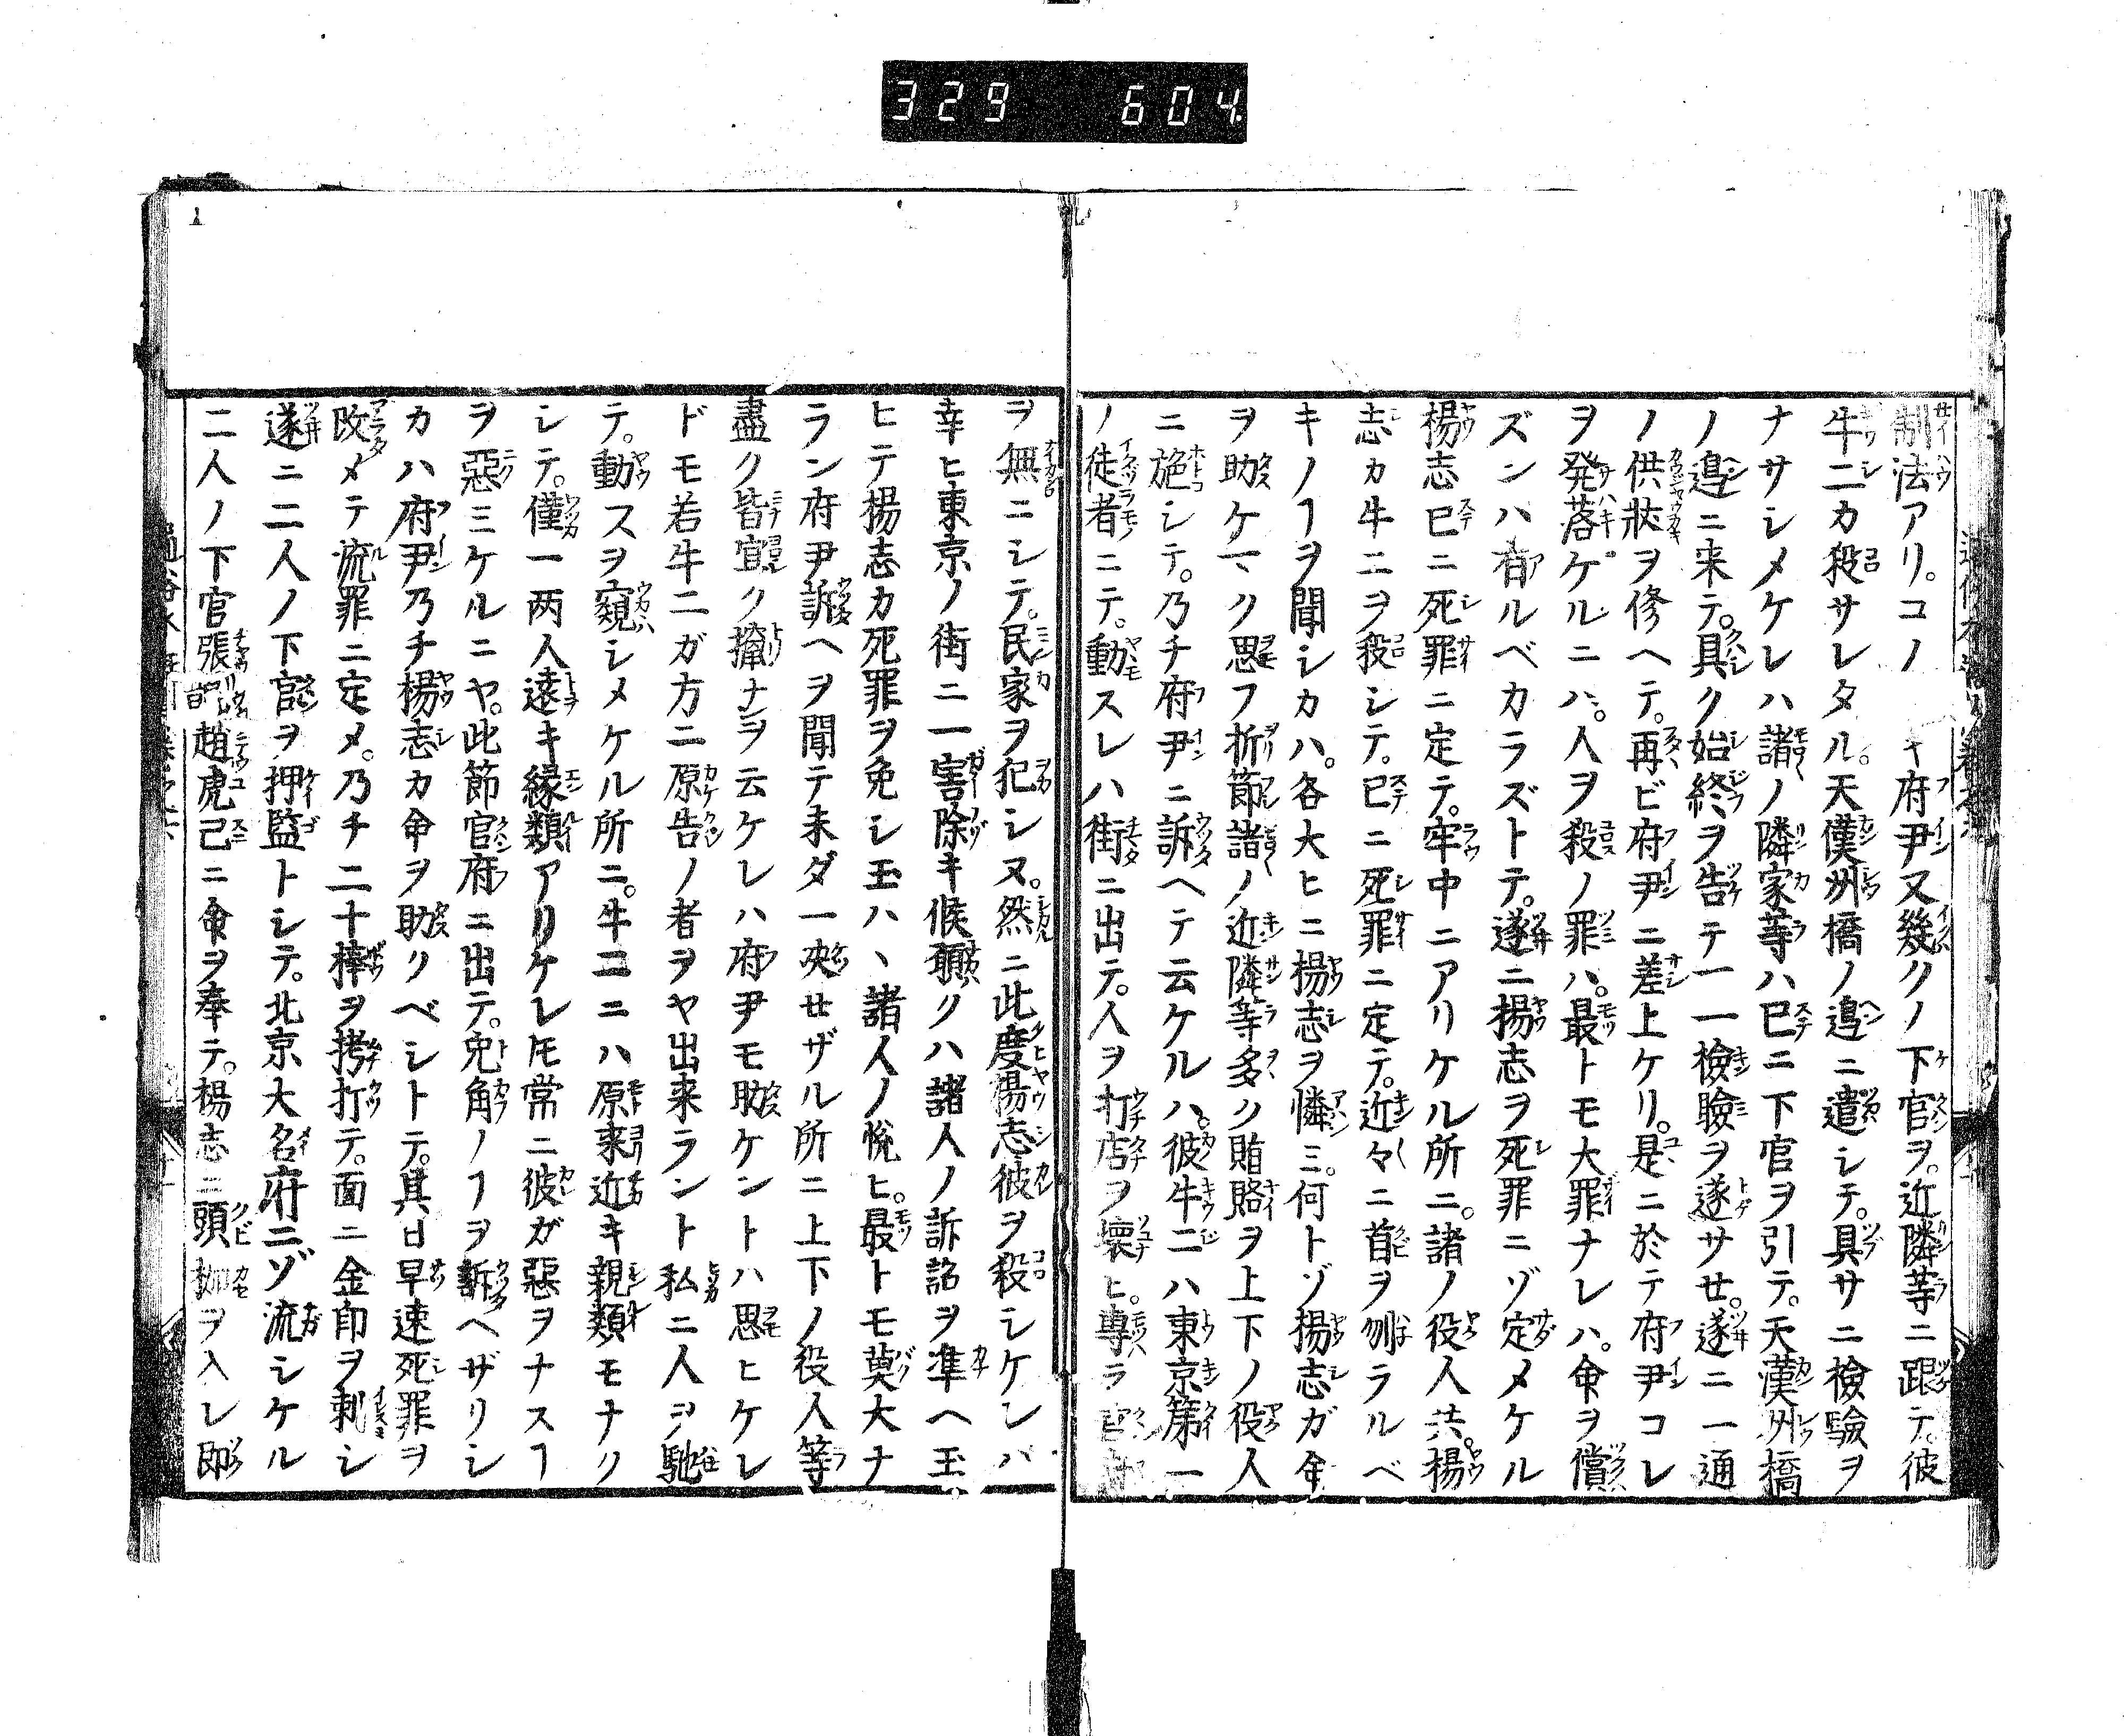 329 604
制法アリ。コノ ヤ府尹又幾クノ下官ヲ。近隣等ニ跟テ。彼
牛二カ殺サレタル。天漢洲橋ノ邉ニ遣シテ。具サニ檢驗ヲ
ナサシメケレハ諸ノ隣家等ハ已ニ下官ヲ引テ。天漢洲橋
ノ邉ニ来テ。具ク始終ヲ告テ一一檢驗ヲ遂サセ。遂ニ一通
ノ供狀ヲ修ヘテ。再ビ府尹ニ差上ケリ。是ニ於テ府尹コレ
ヲ発落ケルニハ。人ヲ殺ノ罪ハ。最トモ大罪ナレハ。命ヲ償
ズンハ有ルベカラズトテ。遂ニ楊志ヲ死罪ニゾ定メケル
楊志已ニ死罪ニ定テ。牢中ニアリケル所ニ。諸ノ役人共。楊
志カ牛二ヲ殺シテ。已ニ死罪ニ定テ。近々ニ首ヲ刎ラルベ
キノヿヲ聞シカハ。各大ヒニ楊志ヲ憐ミ。何トゾ楊志ガ命
ヲ助ケマヽク思フ折節諸ノ近隣等多ク賄賂ヲ上下ノ役人
ニ施シテ。乃チ府尹ニ訴ヘテ云ケルハ。彼牛二ハ東京第一
ノ徒者ニテ。動スレハ街ニ出テ。人ヲ打店ヲ壊ヒ。專ラ官府
ヲ無ニシテ。民家ヲ犯シヌ。然ニ此度楊志彼ヲ殺シケレバ
幸ヒ東京ノ街ニ一害除キ候願クハ諸人ノ訴詔ヲ準ヘ玉
ヒテ楊志カ死罪ヲ免シ玉ハヽ諸人ノ悦ヒ。最トモ莫大ナ
ラン府尹訴ヘヲ聞テ未ダ一决せザル所ニ上下ノ役人等
盡ク皆宜ク擰ナヲ云ケレハ府尹モ助ケントハ思ヒケレ
ドモ若牛二ガ方ニ原告ノ者ヲヤ出来ラント私ニ人ヲ馳
テ。動スヲ窺シメケル所ニ。牛二ニハ原来近キ親類モナク
シテ。僅一両人遠キ縁類アリケレ𪜈常ニ彼ガ惡ヲナスヿ
ヲ惡ミケルニヤ。此節官府ニ出テ。兎角ノヿヲ訴ヘザリシ
カハ府尹乃チ楊志カ命ヲ助クベシトテ。其日早速死罪ヲ
改メテ流罪ニ定メ。乃チ二十棒ヲ拷打テ。面ニ金印ヲ刺シ
遂ニ二人ノ下官ヲ押監トシテ。北京大名府ニゾ流シケル
二人ノ下官張龍趙虎已ニ命ヲ奉テ。楊志ニ頭枷ヲ入レ即